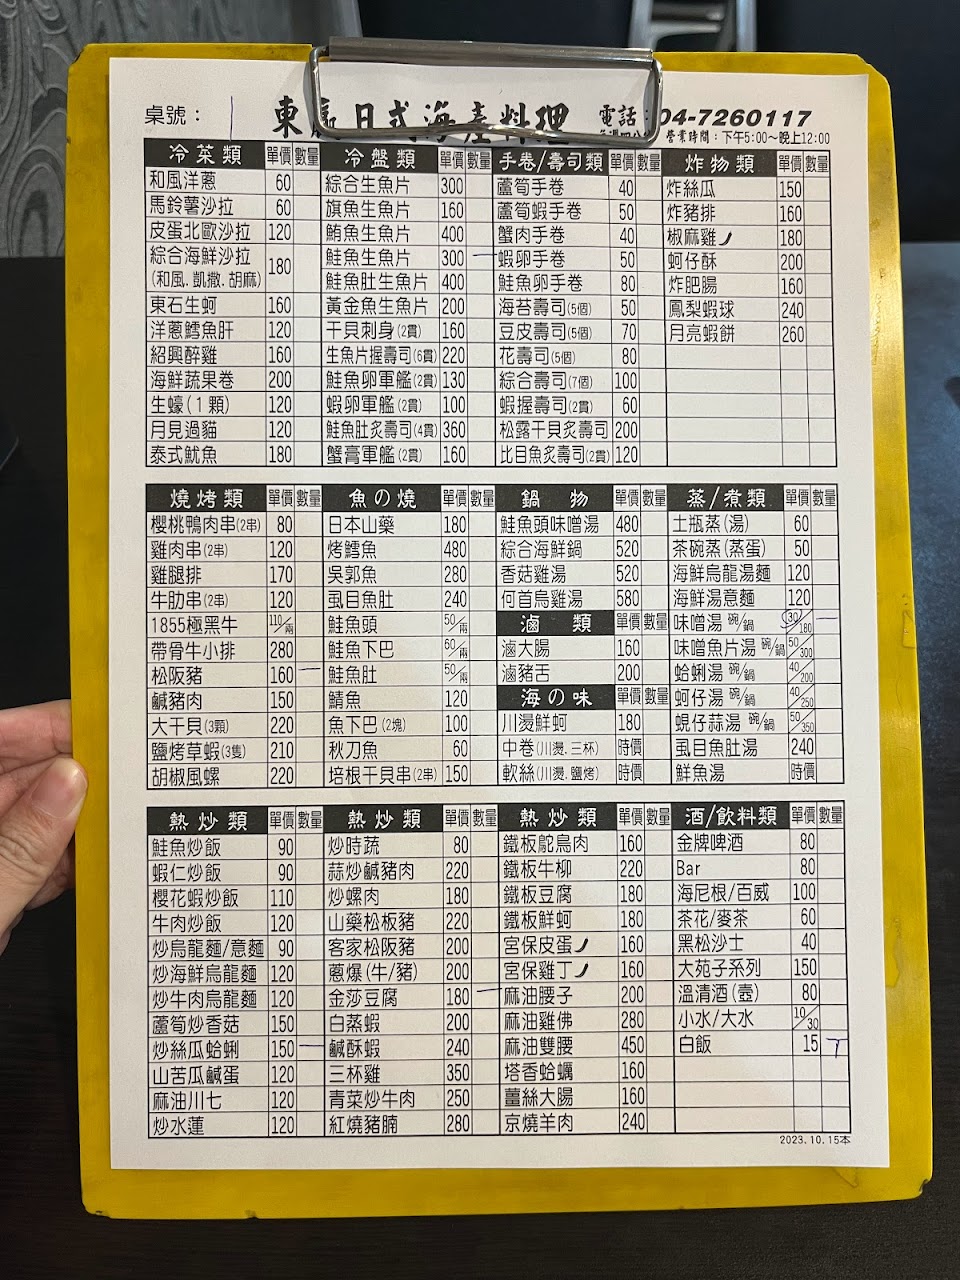 桌號：
東 日式海產料理
電話：04-7260117
營業時間：下午5:00～晚上12:00
冷菜類 單價 數量
和風洋蔥 60
馬鈴薯沙拉 60
皮蛋北歐沙拉 120
綜合海鮮沙拉 180
(和風.凱撒.胡麻)
東石生蚵 160
洋蔥鱈魚肝 120
紹興醉雞 160
海鮮蔬果卷 200
生蠔(1顆) 120
月見過貓 120
泰式魷魚 180
冷盤類 單價 數量
綜合生魚片 300
旗魚生魚片 160
鮪魚生魚片 400
鮭魚生魚片 300
鮭魚肚生魚片 400
黃金魚生魚片 200
干貝刺身(2貫) 160
生魚片握壽司(6貫) 220
鮭魚卵軍艦(2貫) 130
蝦卵軍艦(2貫) 100
鮭魚肚炙壽司(4貫) 360
蟹膏軍艦(2貫) 160
手卷/壽司類 單價 數量
蘆筍手卷 40
蘆筍蝦手卷 50
蟹肉手卷 40
蝦卵手卷 50
鮭魚卵手卷 80
海苔壽司(5個) 50
豆皮壽司(5個) 70
花壽司(5個) 80
綜合壽司(7個) 100
蝦握壽司(2貫) 60
松露干貝炙壽司 200
比目魚炙壽司(2貫) 120
炸物類 單價 數量
炸絲瓜 150
炸豬排 160
椒麻雞 180
蚵仔酥 200
炸肥腸 160
鳳梨蝦球 240
月亮蝦餅 260
燒烤類 單價 數量
櫻桃鴨肉串(2串) 80
雞肉串(2串) 120
雞腿排 170
牛肋串(2串) 120
1855極黑牛 110/兩
帶骨牛小排 280
松阪豬 160
鹹豬肉 150
大干貝(3顆) 220
鹽烤草蝦(3隻) 210
胡椒風螺 220
魚の燒 單價 數量
日本山藥 180
烤鱈魚 480
吳郭魚 280
虱目魚肚 240
鮭魚頭 50/兩
鮭魚下巴 60/兩
鮭魚肚 50/兩
鯖魚 120
魚下巴(2塊) 100
秋刀魚 60
培根干貝串(2串) 150
鍋 物 單價 數量
鮭魚頭味噌湯 480
綜合海鮮鍋 520
香菇雞湯 520
何首烏雞湯 580
滷 類 單價 數量
滷大腸 160
滷豬舌 200
海の味 單價 數量
川燙鮮蚵 180
中卷(川燙.三杯) 時價
軟絲(川燙.鹽烤) 時價
蒸/煮類 單價 數量
土瓶蒸(湯) 60
茶碗蒸(蒸蛋) 50
海鮮烏龍湯麵 120
海鮮湯意麵 120
味噌湯 碗/鍋 30/180
味噌魚片湯 碗/鍋 50/300
蛤蜊湯 碗/鍋 40/200
蚵仔湯 碗/鍋 40/250
蜆仔蒜湯 碗/鍋 50/350
虱目魚肚湯 240
鮮魚湯 時價
熱炒類 單價 數量
鮭魚炒飯 90
蝦仁炒飯 90
櫻花蝦炒飯 110
牛肉炒飯 120
炒烏龍麵/意麵 90
炒海鮮烏龍麵 120
炒牛肉烏龍麵 120
蘆筍炒香菇 150
炒絲瓜蛤蜊 150
山苦瓜鹹蛋 120
麻油川七 120
炒水蓮 120
熱炒類 單價 數量
炒時蔬 80
蒜炒鹹豬肉 220
炒螺肉 180
山藥松板豬 220
客家松阪豬 200
蔥爆(牛/豬) 200
金莎豆腐 180
白蒸蝦 200
鹹酥蝦 240
三杯雞 350
青菜炒牛肉 250
紅燒豬腩 280
熱炒類 單價 數量
鐵板鴕鳥肉 160
鐵板牛柳 220
鐵板豆腐 180
鐵板鮮蚵 180
宮保皮蛋 160
宮保雞丁 160
麻油腰子 200
麻油雞佛 280
麻油雙腰 450
塔香蛤蠣 160
薑絲大腸 160
京燒羊肉 240
酒/飲料類 單價 數量
金牌啤酒 80
Bar 80
海尼根/百威 100
茶花/麥茶 60
黑松沙士 40
大苑子系列 150
溫清酒(壺) 80
小水/大水 10/30
白飯 15
2023.10.15本